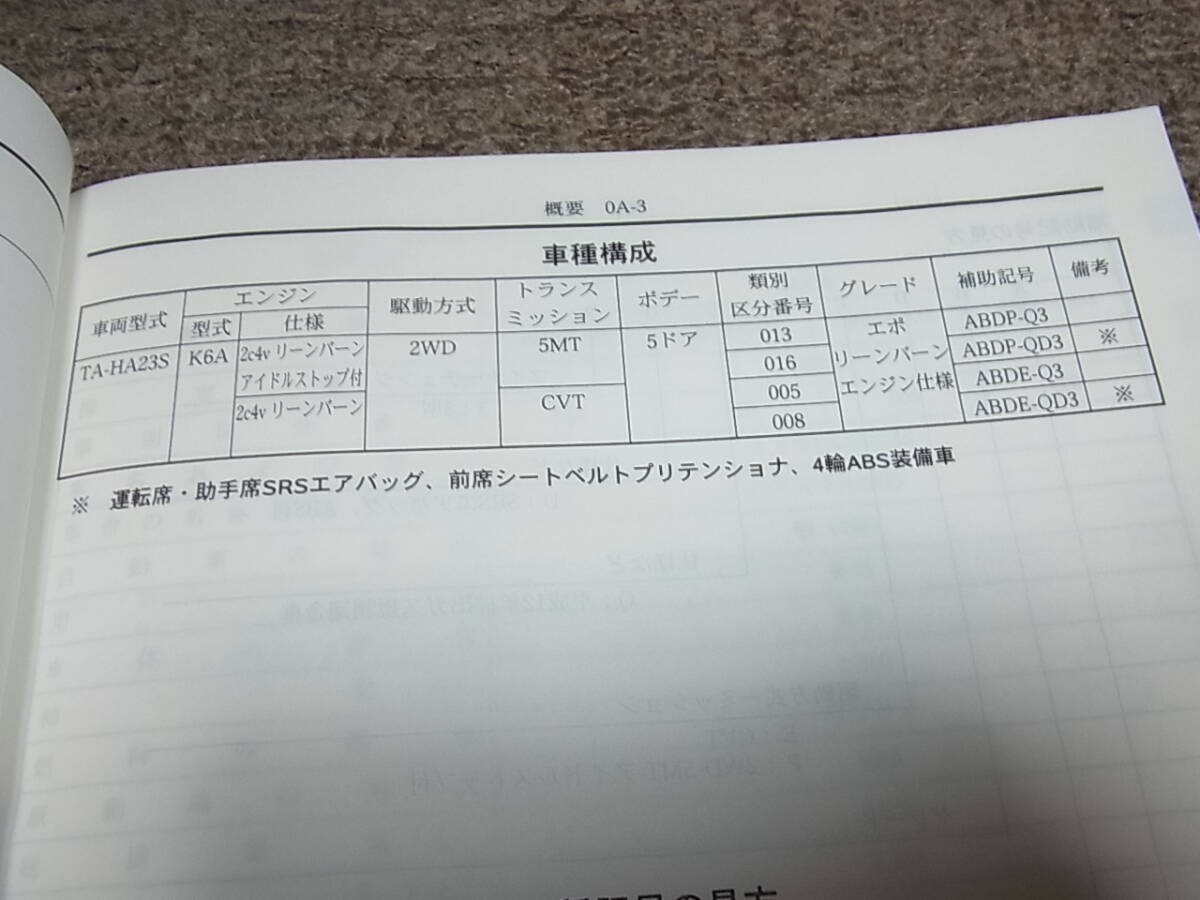 概要 0A-3
車種構成
車両型式 エンジン 駆動方式 トランスミッション ボデー 類別区分番号 グレード 補助記号 備考
型式 仕様
TA-HA23S K6A 2c4v リーンバーン 2WD 5MT 5ドア 013 エポ ABDP-Q3
アイドルストップ付 016 リーンバーン ABDP-QD3 ※
2c4v リーンバーン CVT 005 エンジン仕様 ABDE-Q3
008 ABDE-QD3 ※
※ 運転席・助手席SRSエアバッグ、前席シートベルトプリテンショナ、4輪ABS装備車